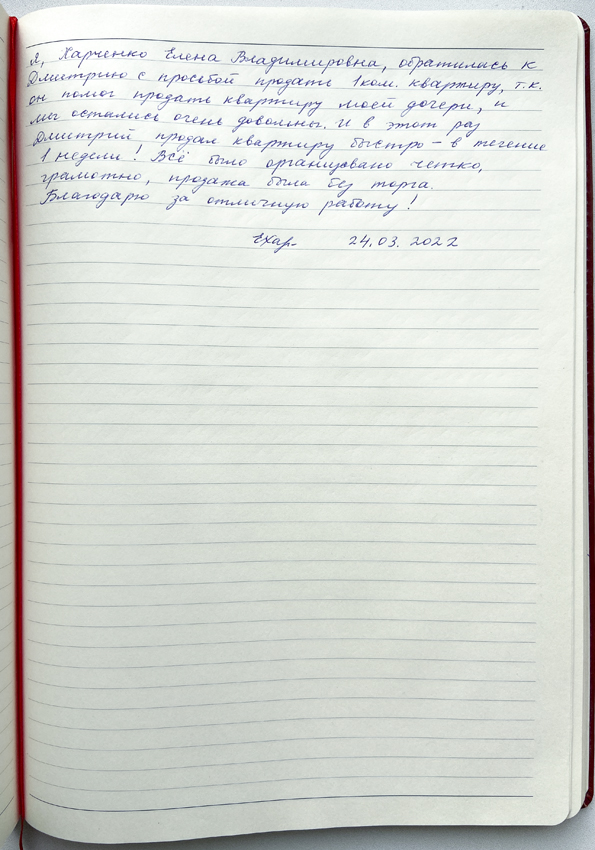 Я, Харченко Елена Владимировна, обратились к
Дмитрию с просьбой продать 1ком. квартиру, т.к.
он помог продать квартиру моей дочери, и
мы остались очень довольны. И в этот раз
Дмитрий продал квартиру быстро – в течение
1 недели! Всё было организовано четко,
грамотно, продажа была без торга.
Благодарю за отличную работу!
ЕХар- 24.03.2022